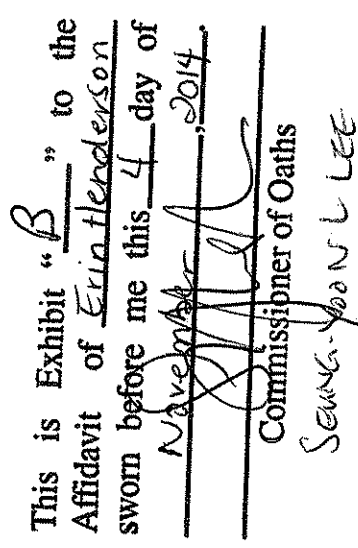 This is Exhibit “ B ” to the
Affidavit of Erin Henderson
sworn before me this 4 day of
November , 2014.
Commissioner of Oaths
SEUNG-YOON L LEE